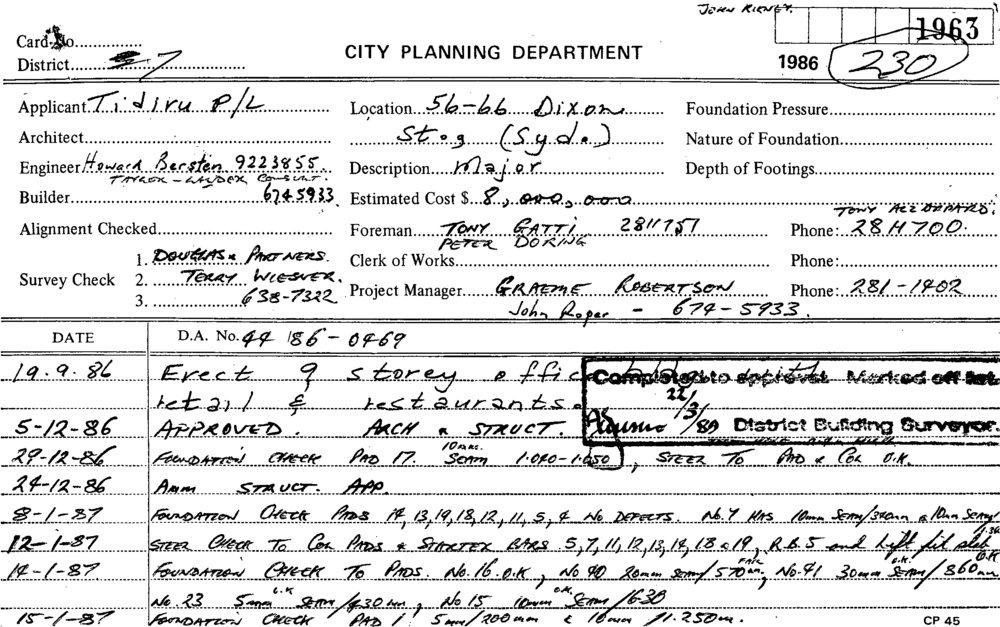 JOHN KIRNEY.
1963
Card No.
District 7
CITY PLANNING DEPARTMENT
1986 230
Applicant Tidiru P/L Location 56-66 Dixon Foundation Pressure
Architect St. (Syd.) Nature of Foundation
Engineer Howard Bersten 9223855 Description Major Depth of Footings
TAYLOR - LAUDER CONSULT.
Builder 6745933 Estimated Cost $ 8,000,000
TONY
Alignment Checked Foreman TONY GATTI 2811757 Phone: 2811700.
PETER DORING
1. DOUGLAS & PARTNERS. Clerk of Works Phone:
Survey Check 2. TERRY WIESNER.
3. 638-7322 Project Manager GRAEME ROBERTSON Phone: 281-1402
John Roper - 674-5933
DATE D.A. No. 44 86-0469
19.9.86 Erect 9 storey office
Completed to approval. Marked off list.
retail & restaurants.
22/3/89 District Building Surveyor.
5-12-86 APPROVED. ARCH & STRUCT.
29-12-86 FOUNDATION CHECK PAD 17. 10mm. SEAM 1.040-1.050, STEEL TO PAD & COL O.K.
24-12-86 Amm STRUCT. APP.
8-1-87 FOUNDATION CHECK PADS 14, 13, 19, 18, 12, 11, 5, 4 NO DEFECTS. No.7 HAS 10mm SEAM/340mm & 10mm SEAM/
12-1-87 STEEL CHECK TO COL PADS & STARTER BARS 5, 7, 11, 12, 13, 14, 18 & 19, R.B.5 and Lift pit slab O.K
14-1-87 FOUNDATION CHECK TO PADS. No.16 O.K, No 40 20mm SEAM/570mm, No.41 30mm SEAM/860mm
No.23 5mm SEAM/430mm O.K, No 15 10mm SEAM/630 O.K
15-1-87 FOUNDATION CHECK PAD 1 5mm/200mm & 10mm/1.250m.
CP 45